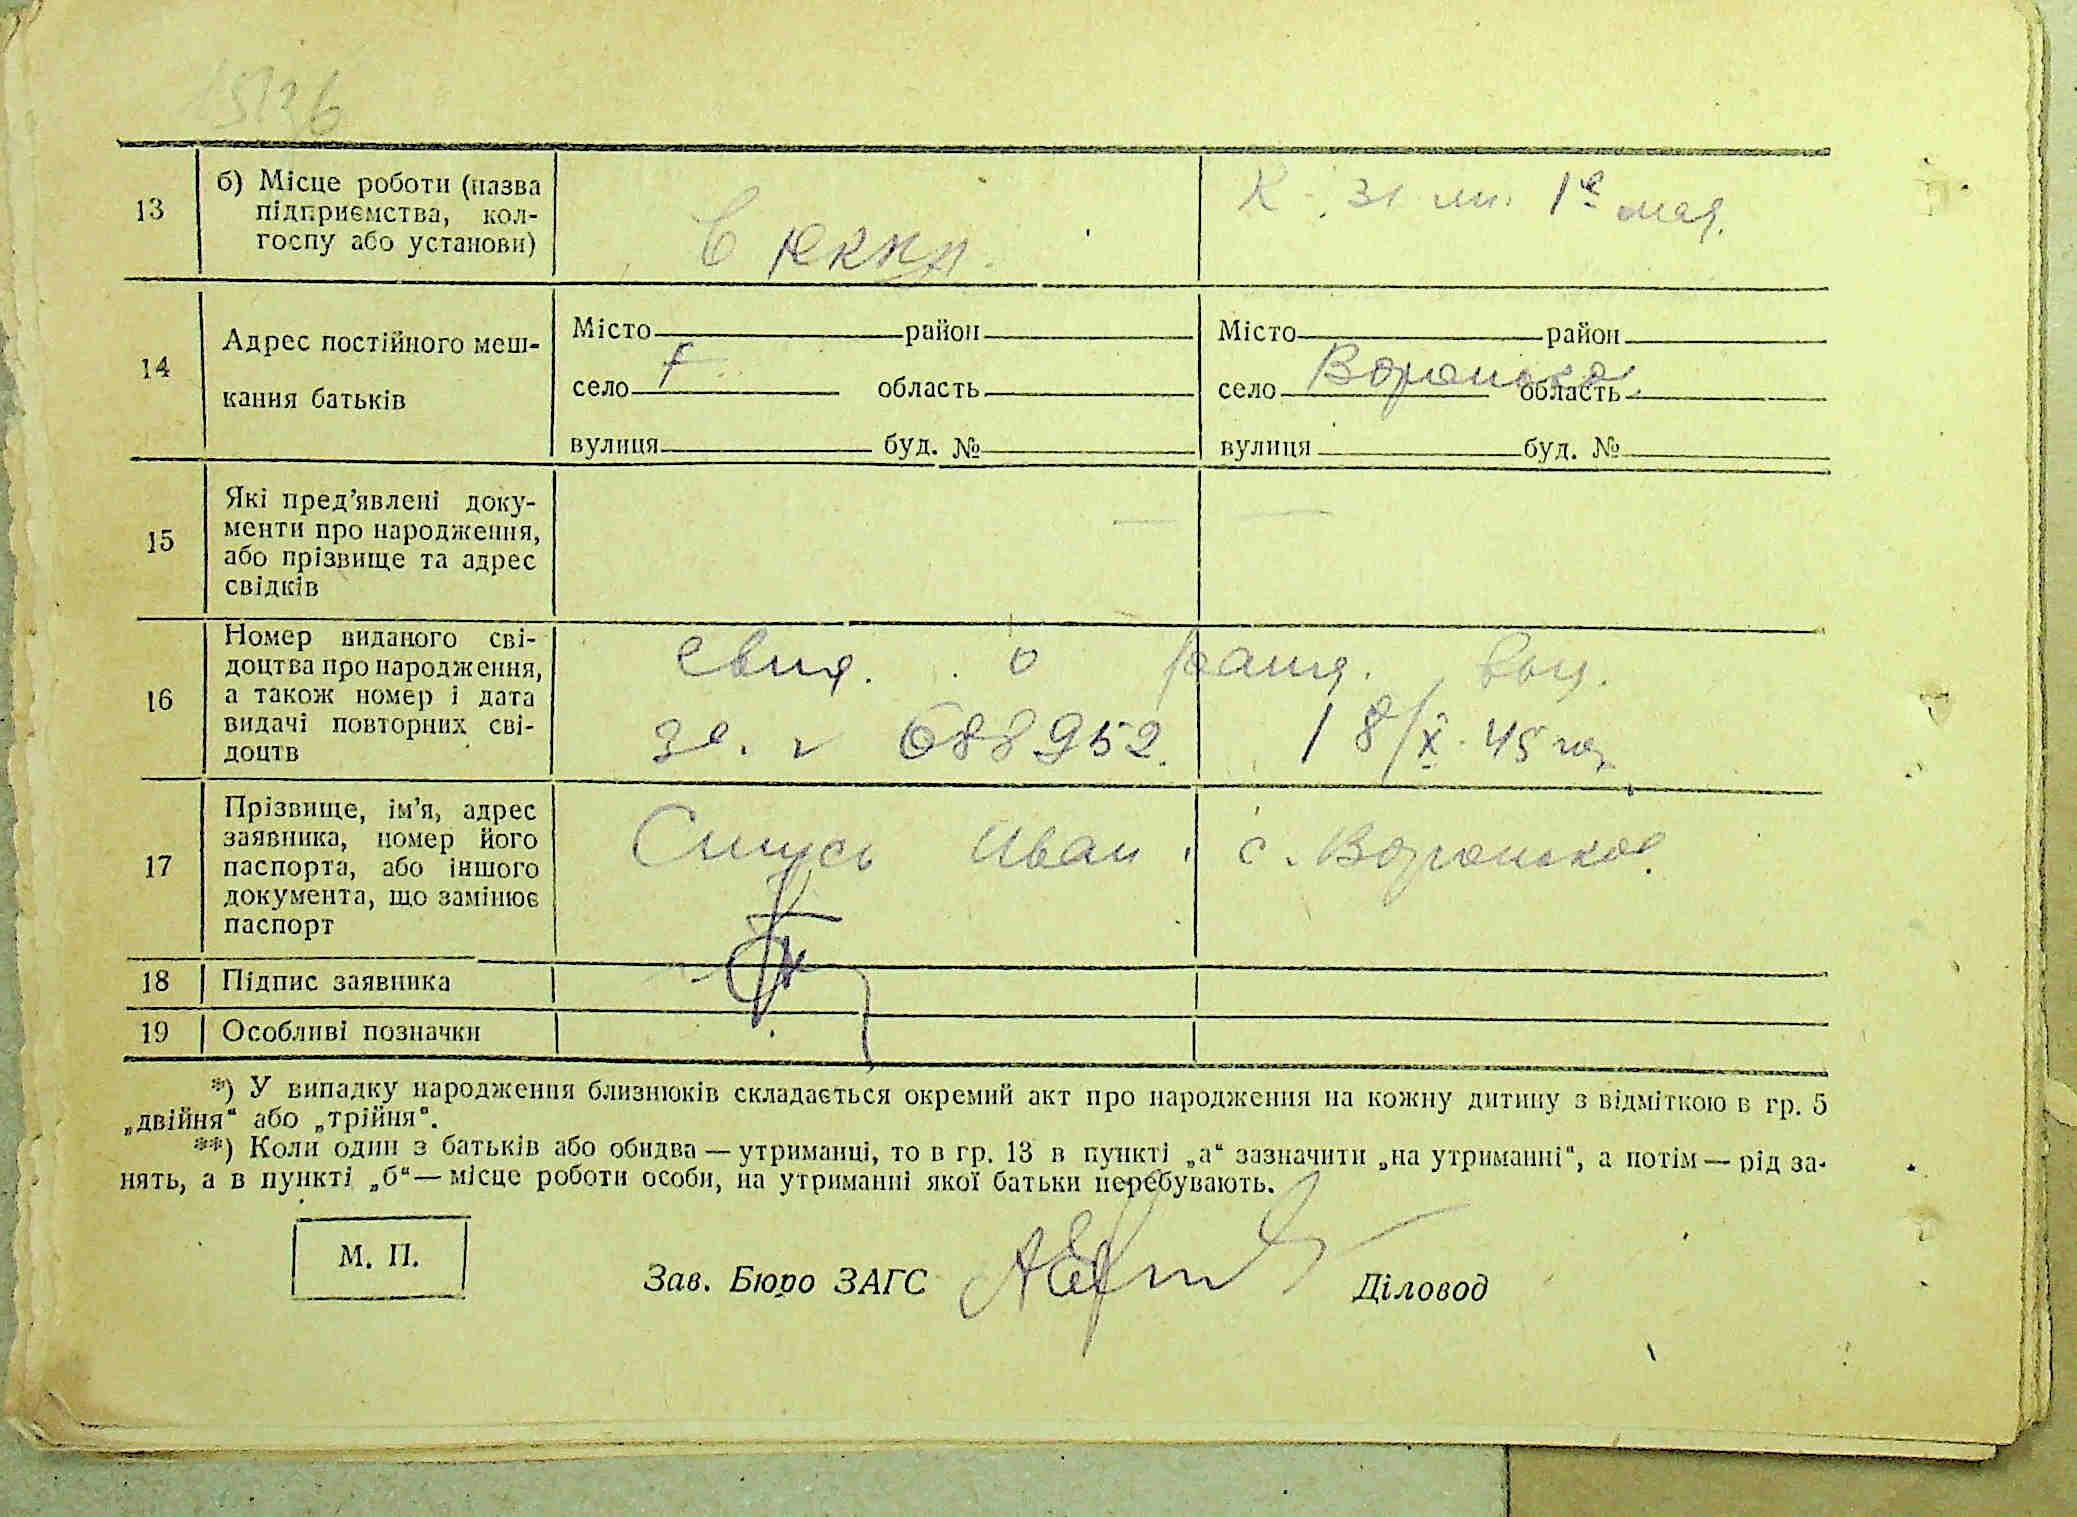 13
б) Місце роботи (назва
підприємства, кол-
госпу або установи)
В РККА
К-з им. 1е мая.
14
Адрес постійного меш-
кання батьків
Місто район
село область
вулиця буд. №
Місто район
село Воронское область
вулиця буд. №
15
Які пред’явлені доку-
менти про народження,
або прізвище та адрес
свідків
16
Номер виданого сві-
доцтва про народження,
а також номер і дата
видачі повторних сві-
доцтв
свид. о рожд. выд.
за № 688952. 18/X-45 год
17
Прізвище, ім’я, адрес
заявника, номер його
паспорта, або іншого
документа, що замінює
паспорт
Иван, с. Воронское.
18 Підпис заявника
19 Особливі позначки
*) У випадку народження близнюків складається окремий акт про народження на кожну дитину з відміткою в гр. 5
„двійня“ або „трійня“.
**) Коли один з батьків або обидва — утриманці, то в гр. 13 в пункті „а“ зазначити „на утриманні“, а потім — рід за-
нять, а в пункті „б“ — місце роботи особи, на утриманні якої батьки перебувають.
М. П.
Зав. Бюро ЗАГС Діловод